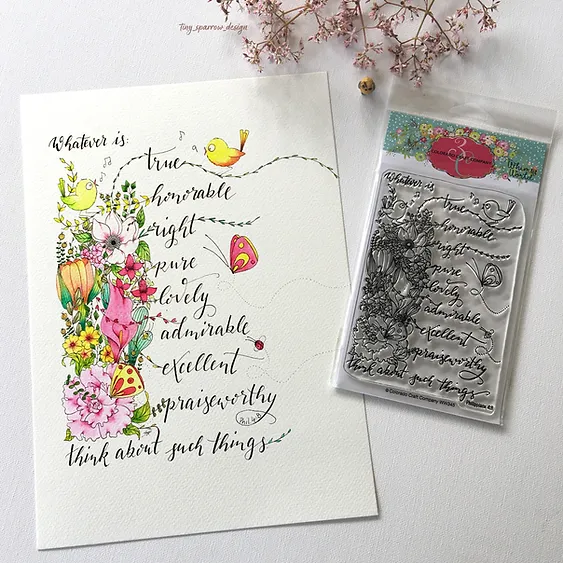 Tiny_sparrow_design
Whatever is:
true
honorable
right
pure
lovely
admirable
excellent
praiseworthy
Phil 4:8
think about such things
COLORADO CRAFT COMPANY
Whatever is
true
honorable
right
pure
lovely
admirable
excellent
praiseworthy
think about such things
Philippians 4:8
©Colorado Craft Company WW345